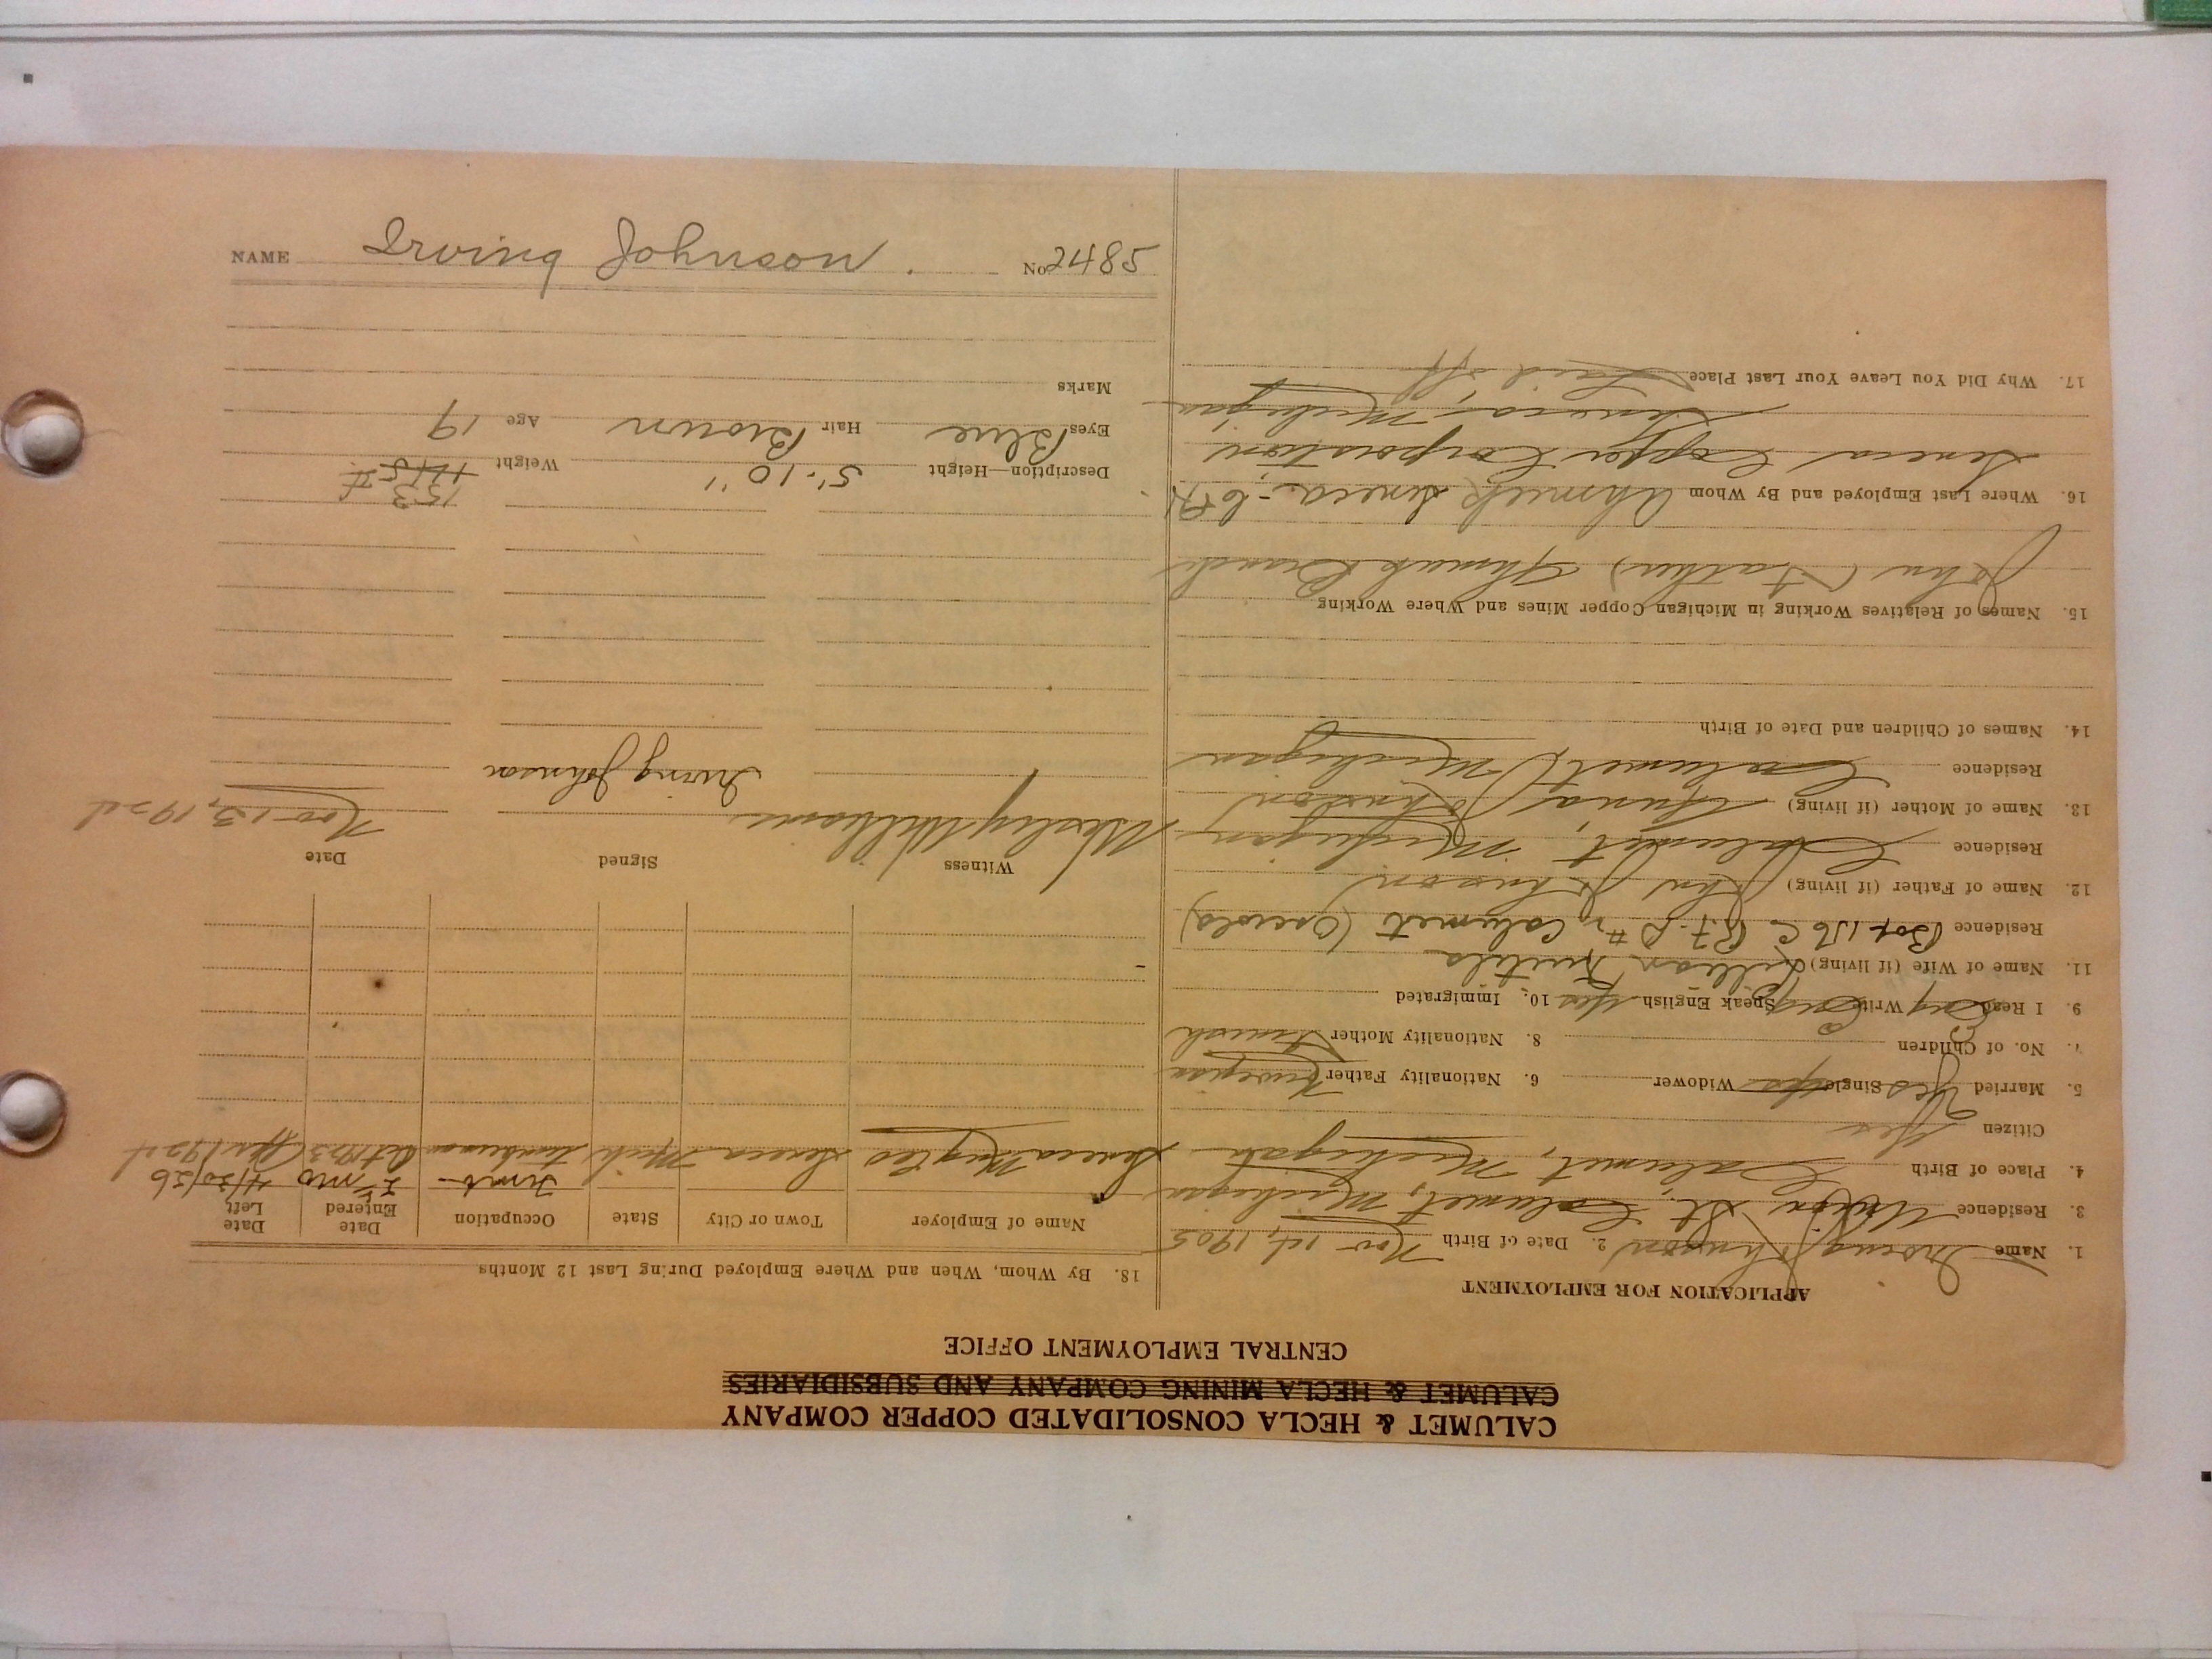 CALUMET & HECLA CONSOLIDATED COPPER COMPANY
CALUMET & HECLA MINING COMPANY AND SUBSIDIARIES
CENTRAL EMPLOYMENT OFFICE
APPLICATION FOR EMPLOYMENT
1. Name Irving Johnson 2. Date of Birth Nov 1st, 1905
3. Residence Union St. Calumet, Michigan
4. Place of Birth Calumet, Michigan
Citizen Yes
5. Married Yes Single Widower 6. Nationality Father Norwegian
7. No. of Children 8. Nationality Mother
9. I Read Eng Write Eng Speak English Yes 10. Immigrated
11. Name of Wife (if living) Lillian
Residence Box 156 C R.F.D # 1, Calumet (Osceola)
12. Name of Father (if living) John Johnson
Residence Calumet, Michigan
13. Name of Mother (if living) Johnson
Residence Calumet, Michigan
14. Names of Children and Date of Birth
15. Names of Relatives Working in Michigan Copper Mines and Where Working
John (Father) Ahmeek Branch
16. Where Last Employed and By Whom Ahmeek Seneca
Seneca Copper Corporation
Seneca, Michigan
17. Why Did You Leave Your Last Place Laid off
18. By Whom, When and Where Employed During Last 12 Months
Name of Employer Town or City State Occupation Date Entered Date Left
4/30/26
Seneca Mng Co Seneca Mich Timberman Oct 1923 Apr 1924
Witness Signed Date
Wesley Williams Irving Johnson Nov 13, 1924
153
Description—Height 5'-10" Weight 145#
Eyes Blue Hair Brown Age 19
Marks
NAME Irving Johnson. No 2485